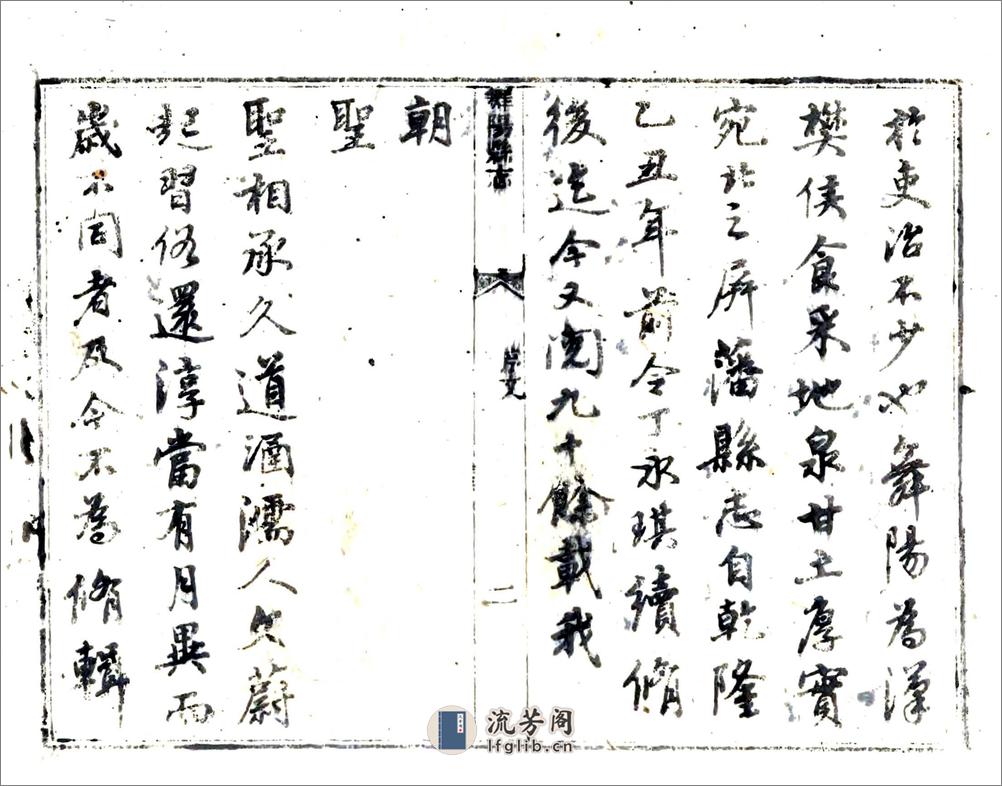 於吏治不少也舞陽為漢
樊侯食采地泉甘土厚實
宛北之屏藩縣志自乾隆
乙丑年前令丁永琪續脩
後迄今又閱九十餘載我
舞陽縣志
序文
二
朝
聖
聖相承久道涵濡人文蔚
起習俗還淳當有月異而
歲不同者及今不為脩輯
流芳阁
lfglib.cn